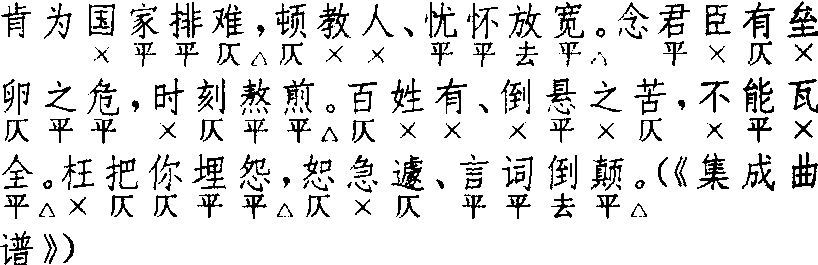 肯为国家排难,顿教人、忧怀放宽。念君臣有垒
× 平 平 仄 △ 仄 × × 平 平 去 平 △ 平 × 仄 ×
卵之危,时刻熬煎。百姓有、倒悬之苦,不能瓦
仄 平 平 × 仄 平 平 △ 仄 × × × 平 × 仄 × 平 ×
全。枉把你埋怨,恕急遽、言词倒颠。(《集成曲
平 △ × 仄 仄 平 平 △ 仄 × 仄 平 平 去 平 △
谱》)